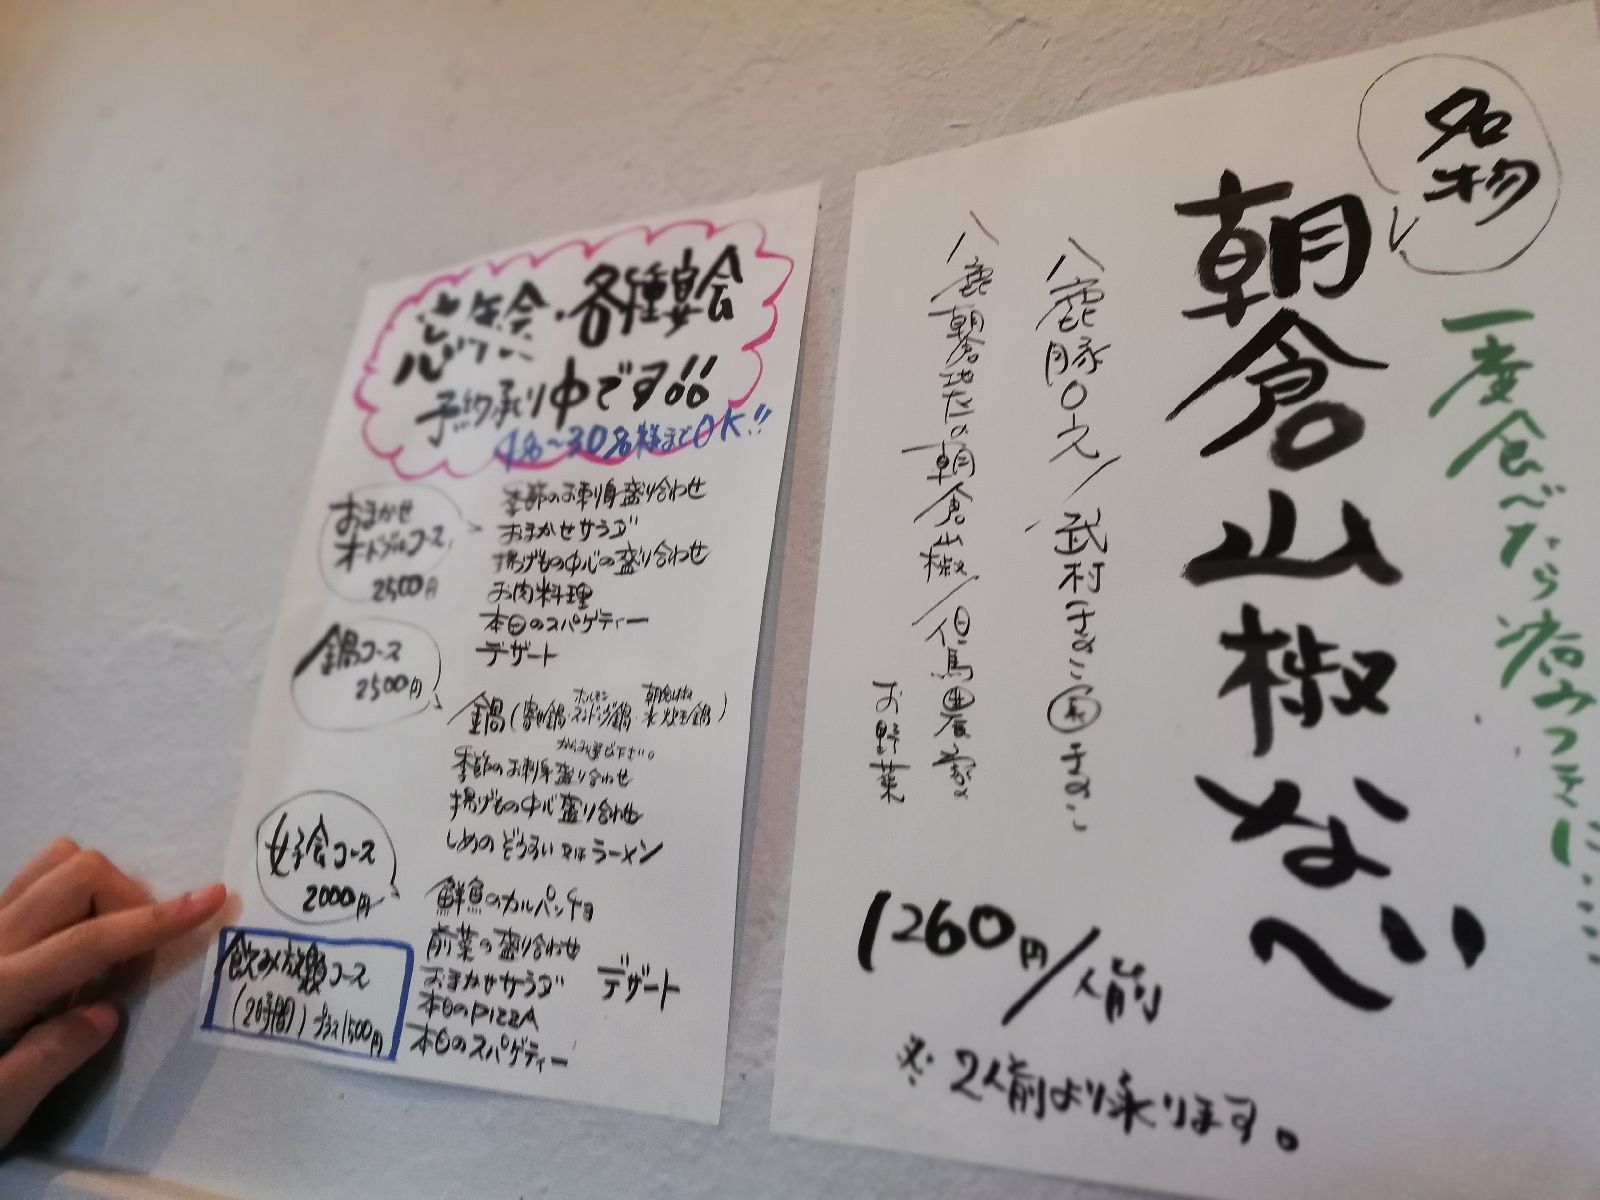 忘年会・各種宴会
予約承り中です!!
4名〜30名様までOK!!
おまかせ
オードブルコース
2500円
季節のお刺身盛り合わせ
おまかせサラダ
揚げもの中心の盛り合わせ
お肉料理
本日のスパゲティー
デザート
鍋コース
2500円
鍋(寄せ鍋・ホルモン鍋・朝倉山椒鍋)
からお選び下さい。
季節のお刺身盛り合わせ
揚げもの中心盛り合わせ
しめのぞうすい又はラーメン
女子会コース
2000円
鮮魚のカルパッチョ
前菜の盛り合わせ
おまかせサラダ
本日のPIZZA
本日のスパゲティー
デザート
飲み放題コース
(2時間)プラス1500円
名物
一度食べたら病みつきに……
朝倉山椒なべ
八鹿豚ロース/武村きのこ園きのこ
八鹿朝倉地区の朝倉山椒/但馬農家の
お野菜
1260円/人前
※2人前より承ります。